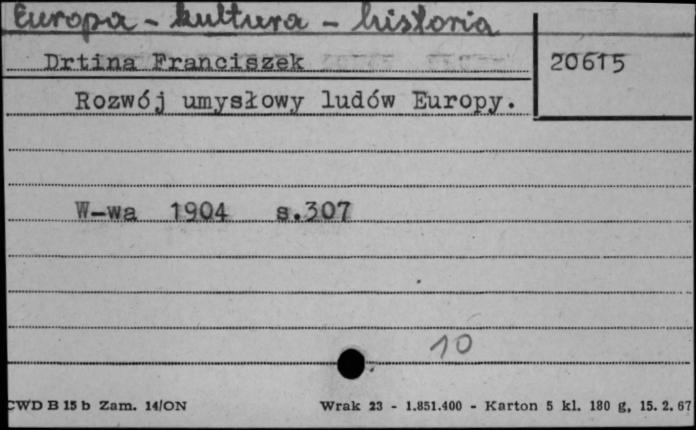 Europa - kultura - historia
Drtina Franciszek
20615
Rozwój umysłowy ludów Europy.
W-wa 1904 s.307
10
CWD B 15 b Zam. 14/ON
Wrak 23 - 1.851.400 - Karton 5 kl. 180 g, 15. 2. 67